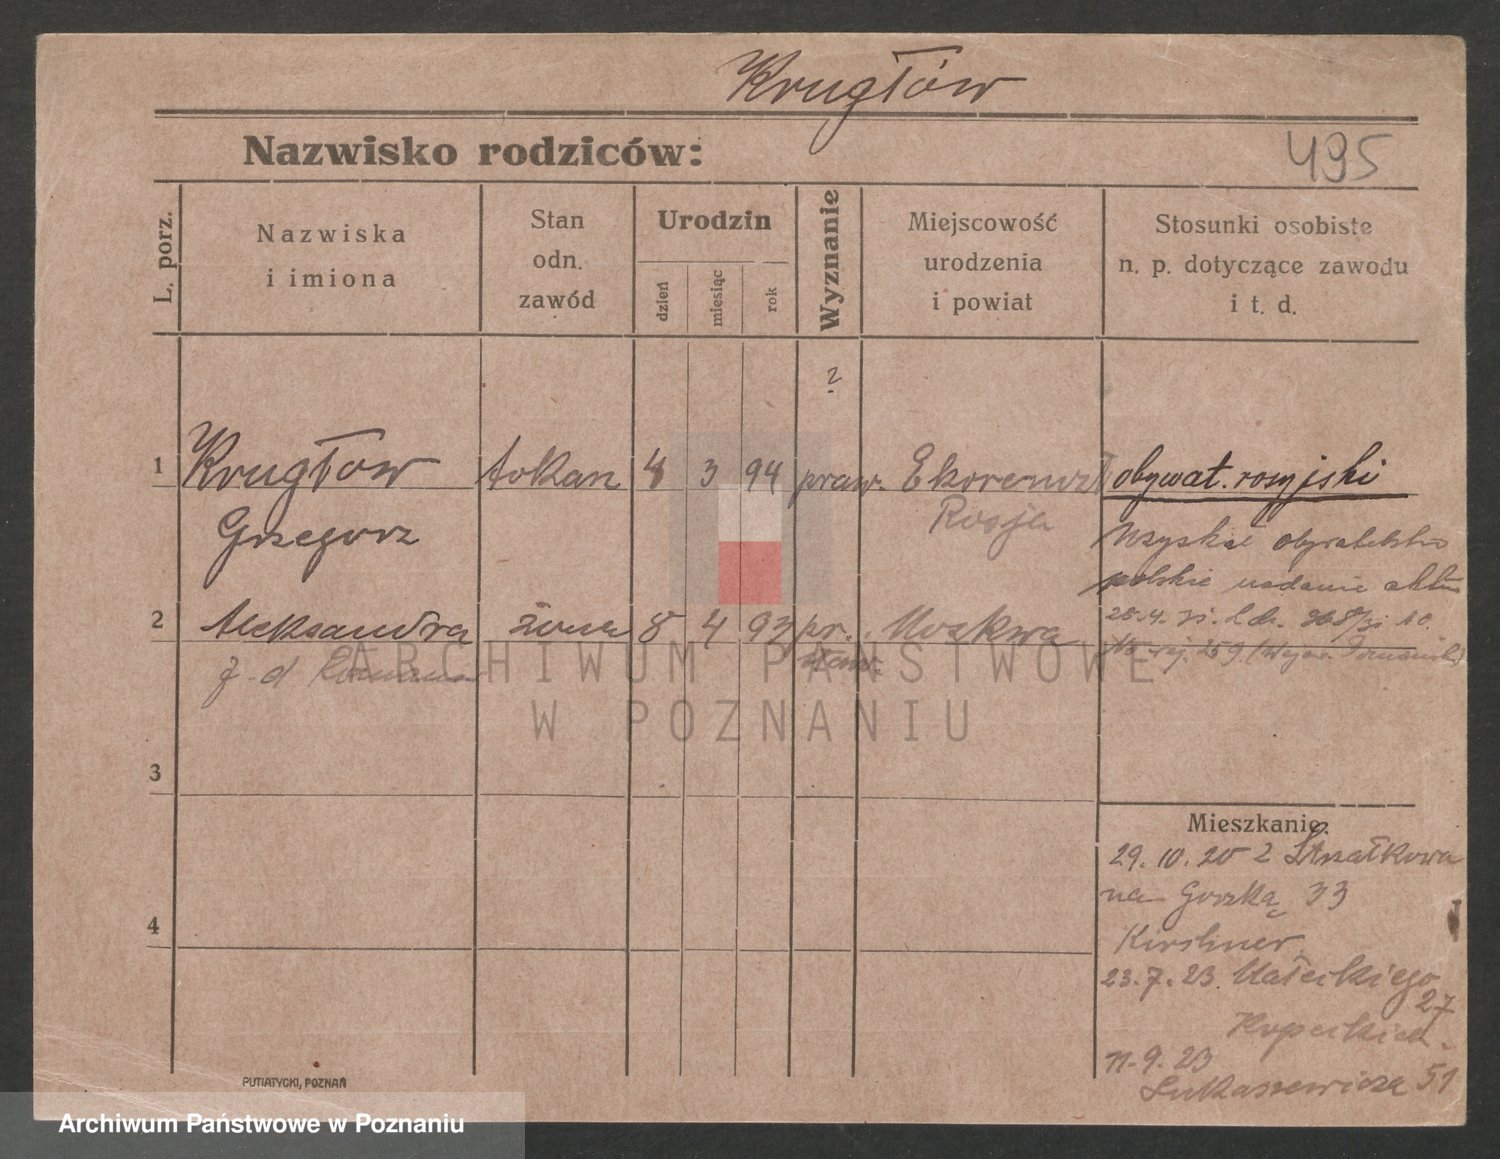 Krugłów
Nazwisko rodziców:
495
L. porz.
Nazwiska
i imiona
Stan
odn.
zawód
Urodzin
dzień
miesiąc
rok
Wyznanie
Miejscowość
urodzenia
i powiat
Stosunki osobiste
n. p. dotyczące zawodu
i t. d.
?
1 Krugłow tokarz 4 3 94 praw. obywat. rosyjski
Grzegorz
Rosja
obywatelstwo
polskie nadanie aktem
2 Aleksandra żona 8 4 93 pr. Moskwa
28.4.
ż. d.
3
4
Mieszkanie:
29.10.20 z Strzałkowa
na Górzką 33
Kirshner
23.7.23 Małeckiego
27
11.9.23
Łukaszewicza 51
PUTIATYCKI, POZNAŃ
ARCHIWUM PAŃSTWOWE
W POZNANIU
Archiwum Państwowe w Poznaniu